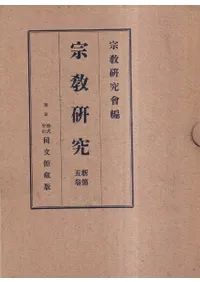 宗教研究會編
宗教研究
新第
五巻
東京
株式
會社
同文館藏版